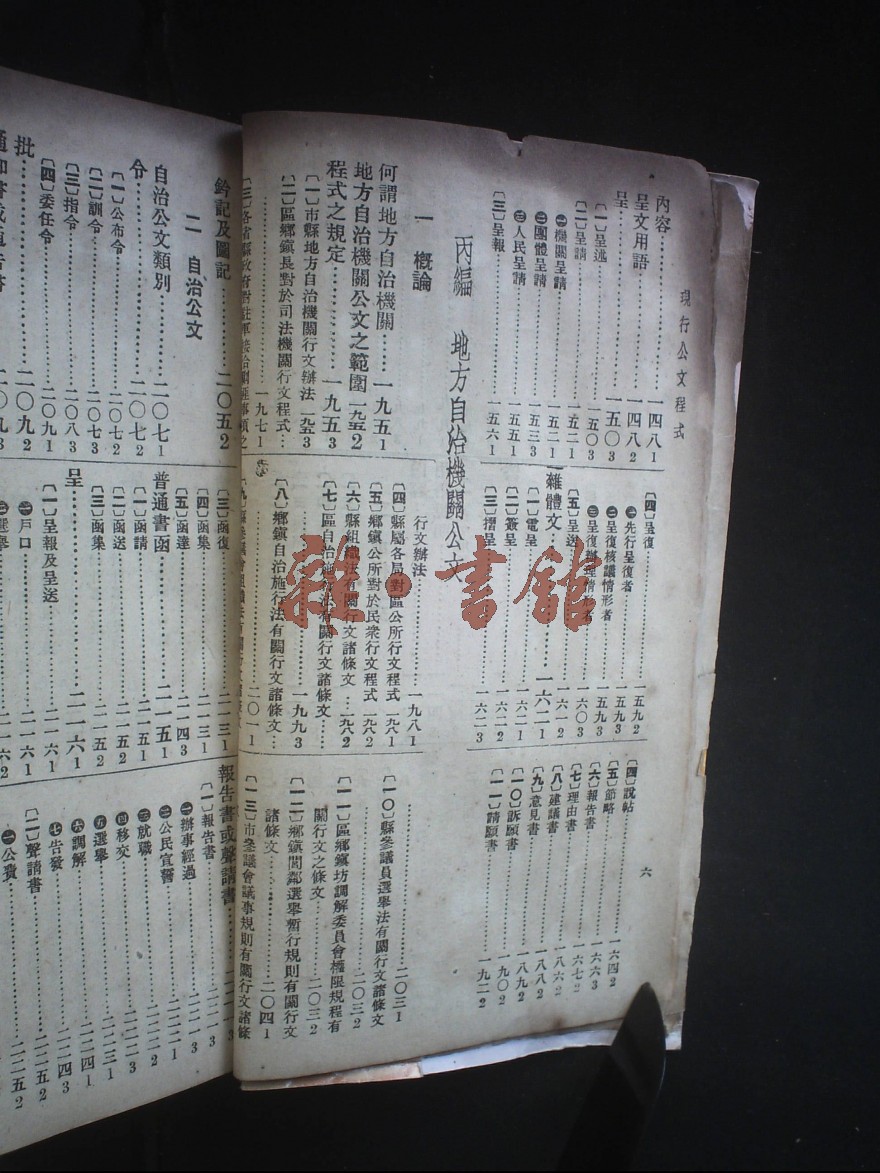 現行公文程式
六
內容⋯⋯一四八1
呈文用語⋯⋯一四八2
呈⋯⋯一五〇3
〔一〕呈述⋯⋯一五〇3
〔二〕呈請⋯⋯一五二1
㊀機關呈請⋯⋯一五二1
㊁團體呈請⋯⋯一五三3
㊂人民呈請⋯⋯一五五1
〔三〕呈報⋯⋯一五六1
〔四〕呈復⋯⋯一五九2
㊀先行呈復者⋯⋯一五九3
㊁呈復核議情形者⋯⋯一五九3
㊂呈復辦理情形者⋯⋯一六〇3
〔五〕呈送⋯⋯一六一2
雜體文⋯⋯一六二1
〔一〕電呈⋯⋯一六二1
〔二〕簽呈⋯⋯一六二2
〔三〕摺呈⋯⋯一六二3
〔四〕說帖⋯⋯一六四2
〔五〕節略⋯⋯一六六3
〔六〕報告書⋯⋯一六六3
〔七〕理由書⋯⋯一六七2
〔八〕建議書⋯⋯一八六2
〔九〕意見書⋯⋯一八八2
〔一〇〕訴願書⋯⋯一八九2
〔一一〕請願書⋯⋯一九〇2
一九二2
丙編　地方自治機關公文
一　概論
何謂地方自治機關⋯⋯一九五1
地方自治機關公文之範圍一九五2
程式之規定⋯⋯一九五3
〔一〕市縣地方自治機關行文辦法　一九五3
〔二〕區鄉鎮長對於司法機關行文程式⋯
⋯⋯一九七1
〔三〕各省縣政府對駐軍接洽剿匪事項之
行文辦法⋯⋯一九八1
〔四〕縣屬各局對區公所行文程式一九八1
〔五〕鄉鎮公所對於民衆行文程式一九八2
〔六〕縣組織法有關行文諸條文⋯一九八2
〔七〕區自治施行法有關行文諸條文⋯⋯
⋯⋯一九九3
〔八〕鄉鎮自治施行法有關行文諸條文⋯
⋯⋯二〇一1
〔一〇〕縣參議員選舉法有關行文諸條文
⋯⋯二〇三1
〔一一〕區鄉鎮坊調解委員會權限規程有
關行文之條文⋯⋯二〇三2
〔一二〕鄉鎮閭鄰選舉暫行規則有關行文
諸條文⋯⋯二〇四1
〔一三〕市參議會議事規則有關行文諸條
鈐記及圖記⋯⋯二〇五2
二　自治公文
自治公文類別⋯⋯二〇七1
令⋯⋯二〇七2
〔一〕公布令⋯⋯二〇七2
〔二〕訓令⋯⋯二〇七3
〔三〕指令⋯⋯二〇八3
〔四〕委任令⋯⋯二〇九1
批⋯⋯二〇九2
二〇九3
〔三〕函復⋯⋯二一三1
〔四〕函集⋯⋯二一三1
〔五〕函達⋯⋯二一四3
普通書函⋯⋯二一五1
〔一〕函請⋯⋯二一五1
〔二〕函送⋯⋯二一五2
〔三〕函集⋯⋯二一五2
呈⋯⋯二一六1
〔一〕呈報及呈送⋯⋯二一六1
㊀戶口⋯⋯二一六1
㊁選舉⋯⋯二一六2
報告書或聲請書⋯⋯
〔一〕報告書⋯⋯
㊀辦事經過
㊁公民宣誓⋯⋯
㊂就職⋯⋯
㊃移交⋯⋯
㊄選舉⋯⋯
㊅調解⋯⋯
㊆告發⋯⋯
〔二〕聲請書⋯⋯
㊀公費⋯⋯
雜·書館